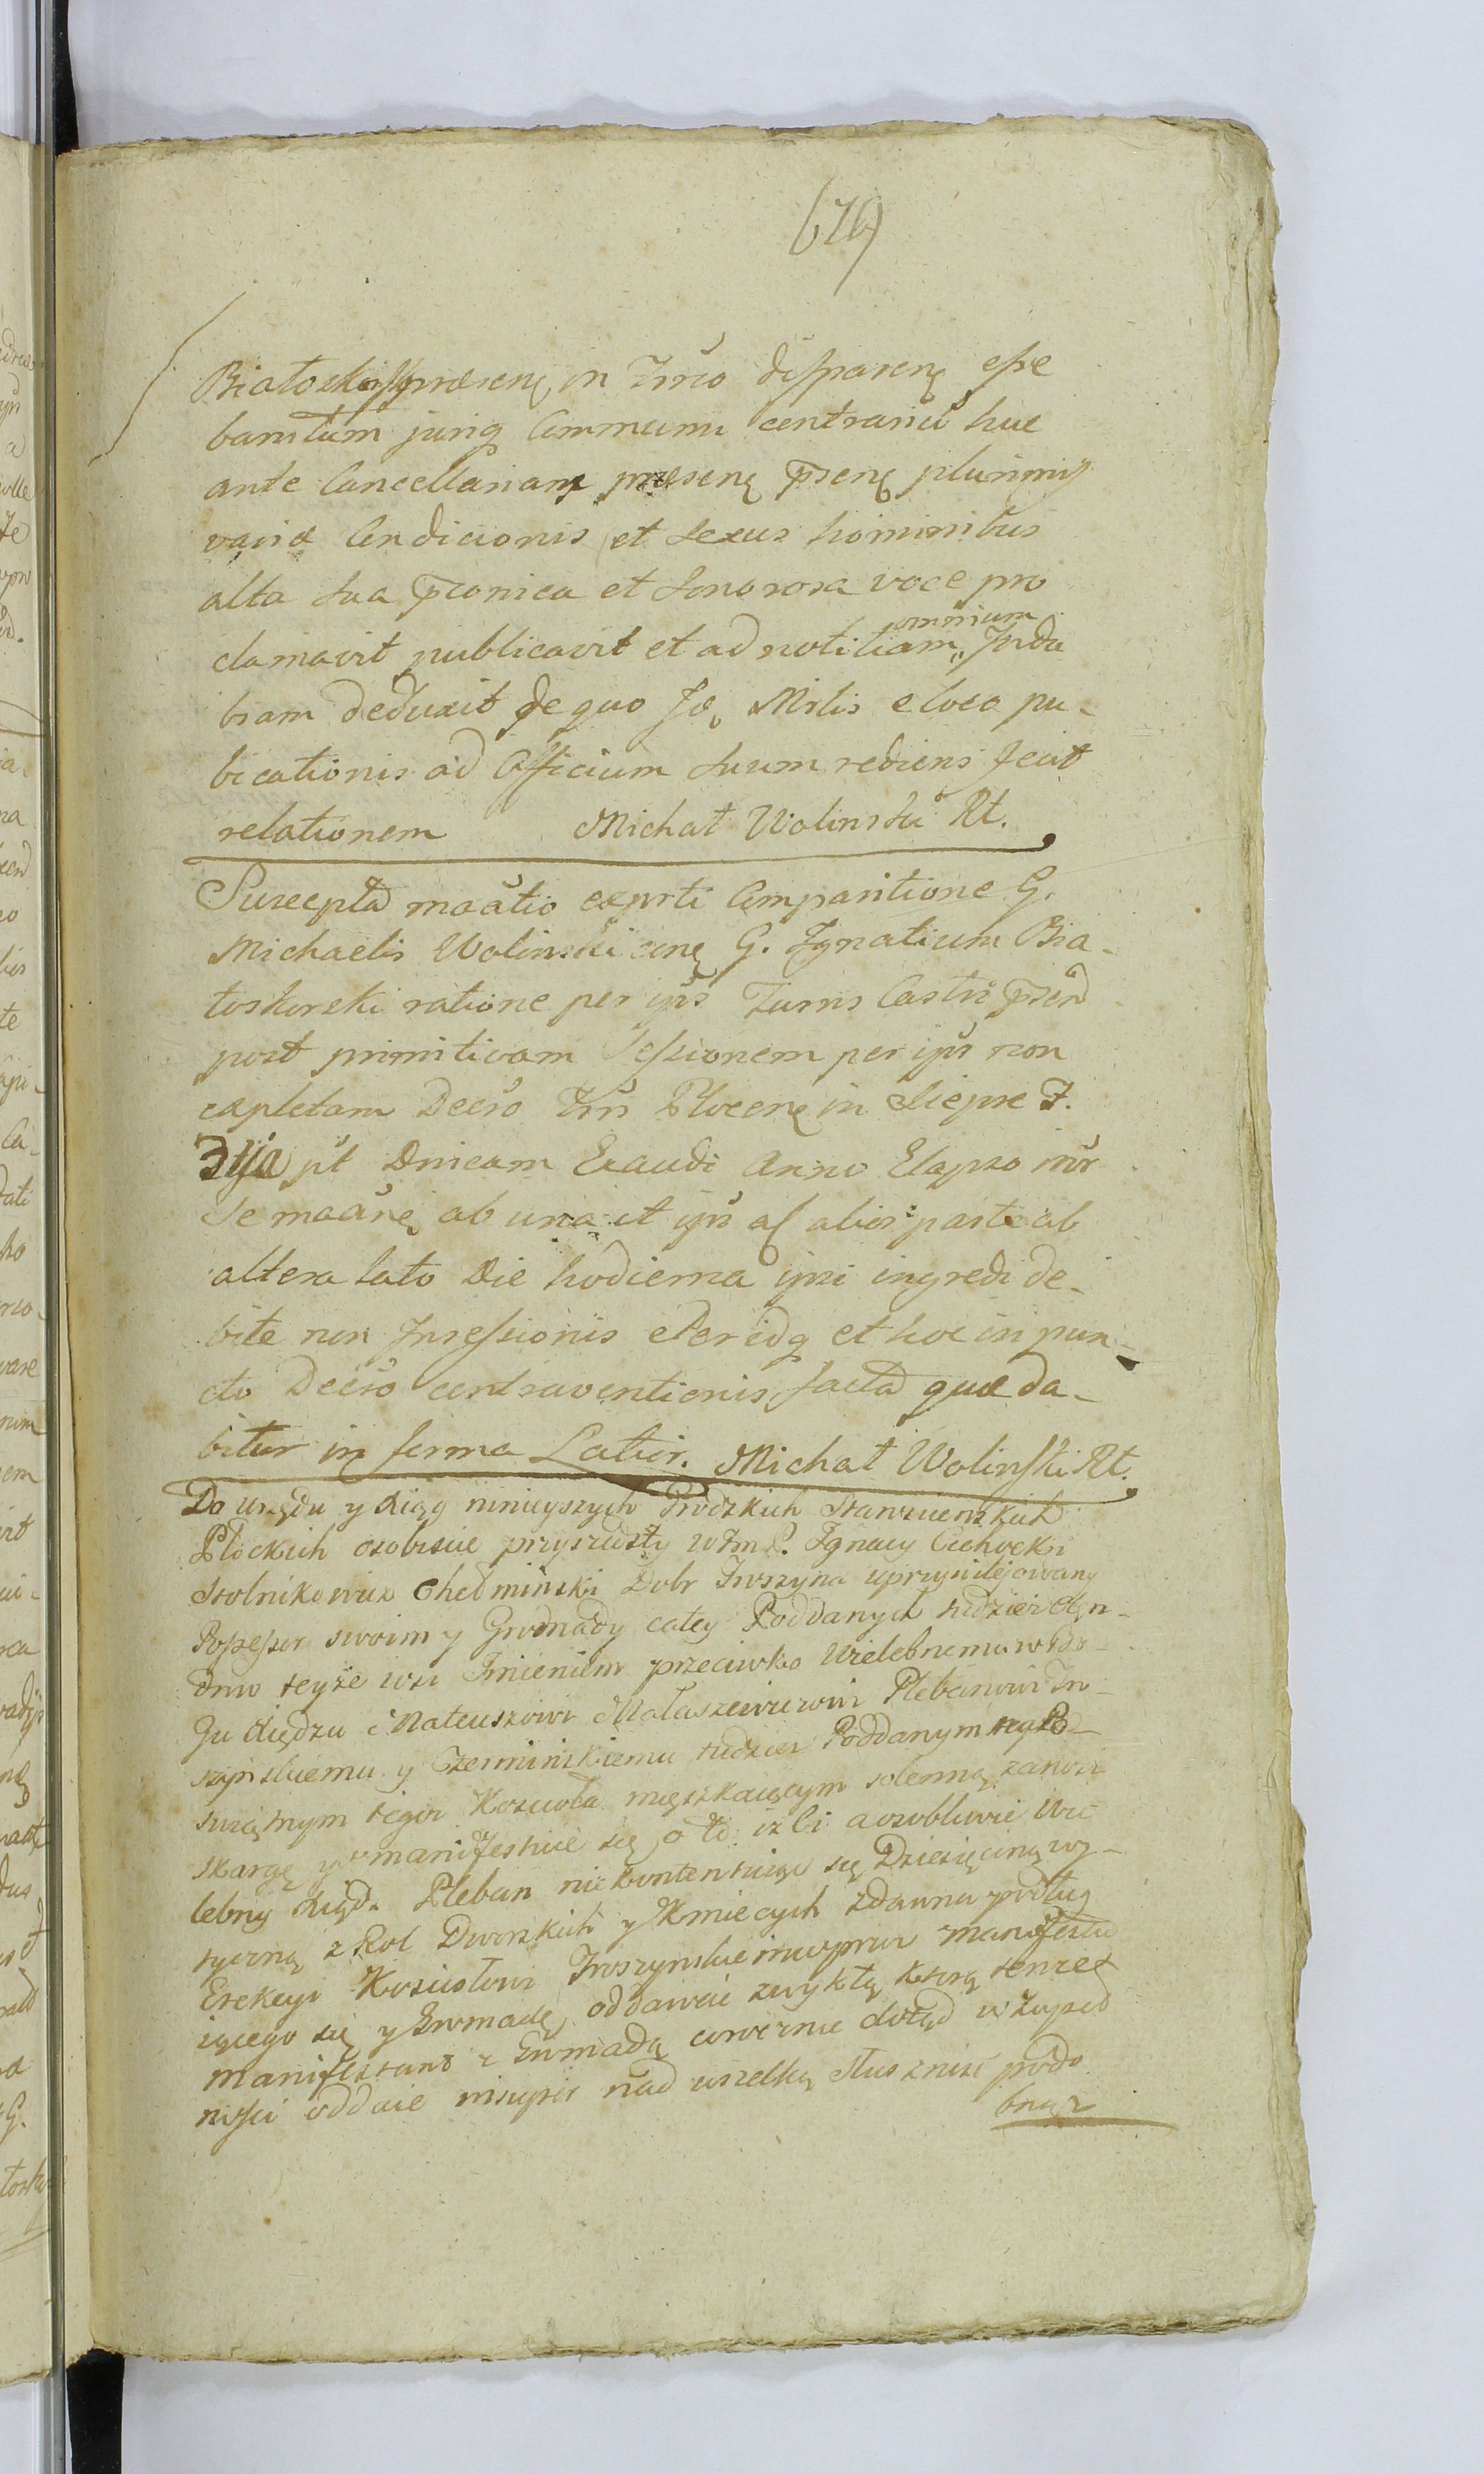 (679)
Białoskorski praesenę in Trřio disparenę esse
banitum juriq Communi contrariũ huc
ante Cancellariam praesenę Psenę plurimis
variæ Condicionis et Sexus hominibus
alta sua Pconica et Sonorosa voce pro
clamavit publicavit et ad notitiam omnium Indu
biam deduxit de quo Id, Mrlis e loco pu-
bicationis ad Officium suum rediens fecit
relationem Michał Wolinski Rt.
Suscepta maãtio exprti Comparitione G.
Michaelis Wolinski cenę G. Ignatium Bia-
łoskorski ratione per ips Iurris Castri Psend
post primitivam Sessionem per ips non
expletam Decro Trři Płocenę in Siepre F.
3tja pt Dnicam Exaudi Anno Elapso inr
Se maãnę ab una et ips al alios parte ab
altera lato Die hodierna ipsi ingredi de-
bite non Insessionis eter idq et hoc in pun-
cto Decro contraventionis facta quæ da-
bitur in forma Latior. Michał Wolinski Rt.
Do urzędu y Xiąg ninieyszych Grodzkich Starościnskich
Płockich osobiscie przyszedszy WImP. Ignacy Cichocki
Stolnikowicz Chełminski Dobr Troszyna uprzywilejowany
Possessor swoim y Gromady całey Poddanych tudziez
dnio teyże wsi Imieniem przeciwko Wielebnemu w Bo-
gu Xiędzu Mateuszowi Małaszewiczowi Plebanowi Tro-
szynskiemu y Czerminskiemu tudziez Poddanym tegoż
swiętnym tegoż Koscioła mięszkaiącym solenną zanosi
skargę y manifestuie się o to iż Ci a osobliwie Wie
lebny Xiądz Pleban niekontentuiąc się Dziesięciną wy-
tyczną z Rol Dworskich y Kmiecych zdawna podług
Erekcyi Kosciołowi Troszynskiemu przez manifestu
iącego się y Gromadę oddawać zwykłą ktorą tenże
manifestant z Gromadą corocznie dotąd w zupeł
nosci oddaie nisupes nad wszelką słusznosc podo
bnąz